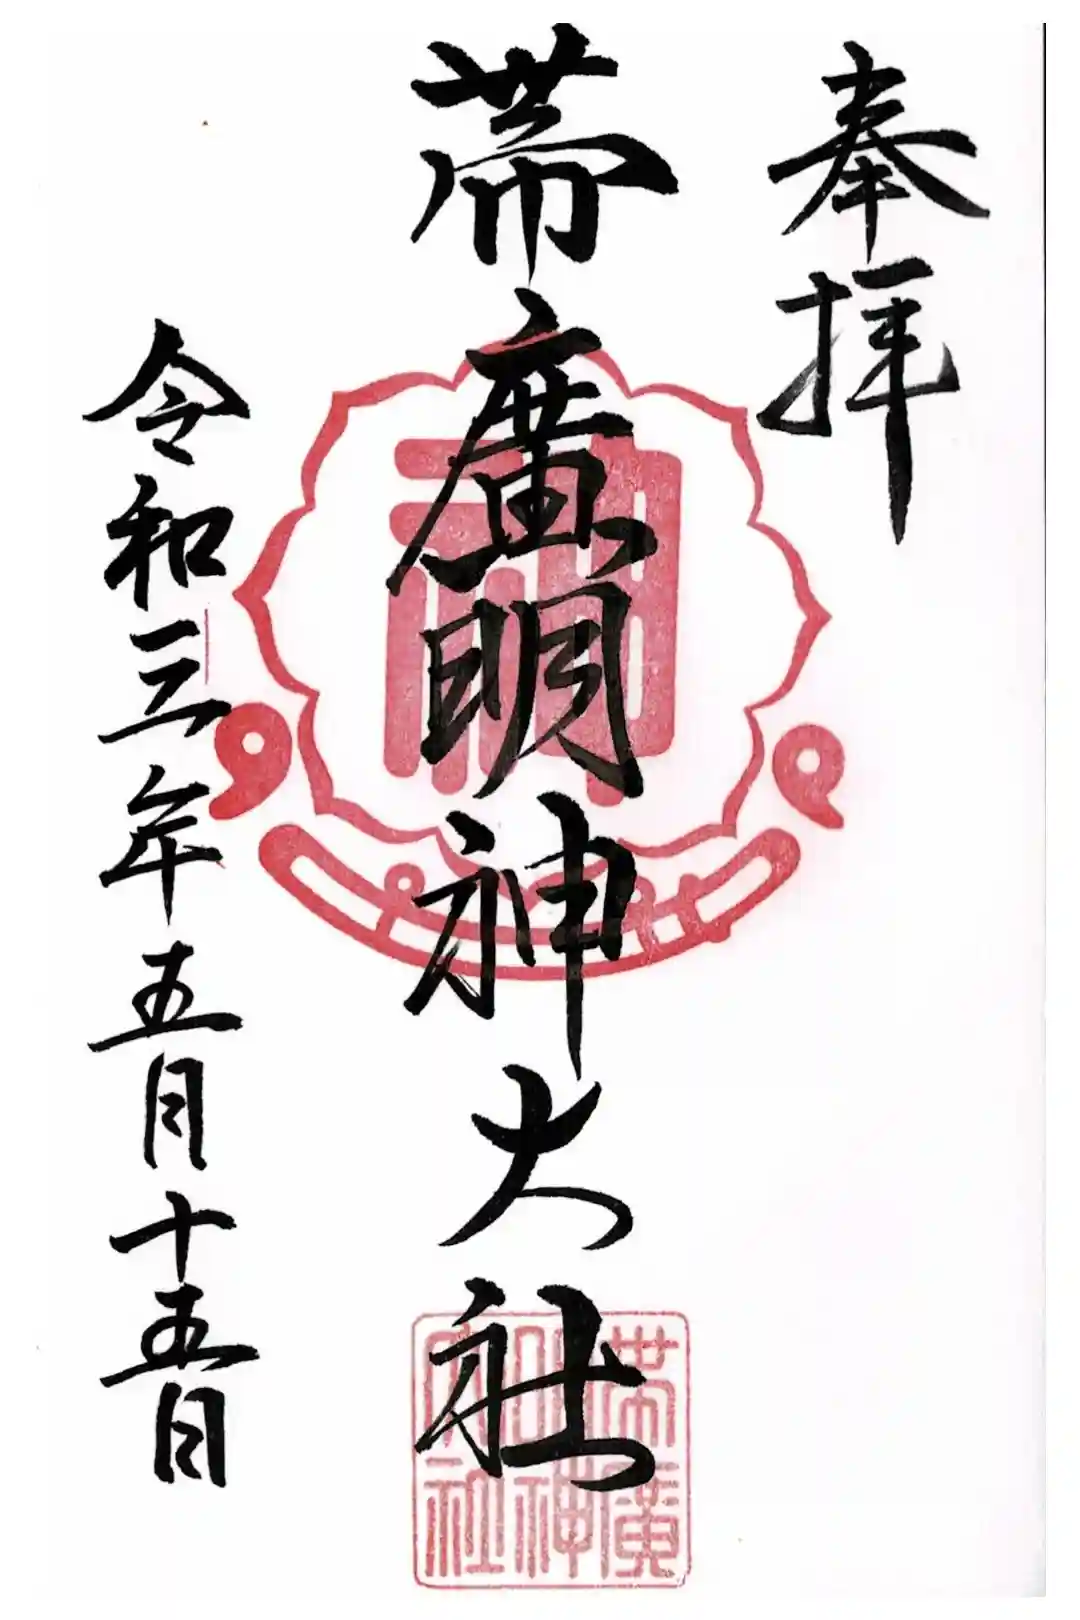 奉拝
帯廣明神大社
令和三年五月十五日
帯廣明神大社